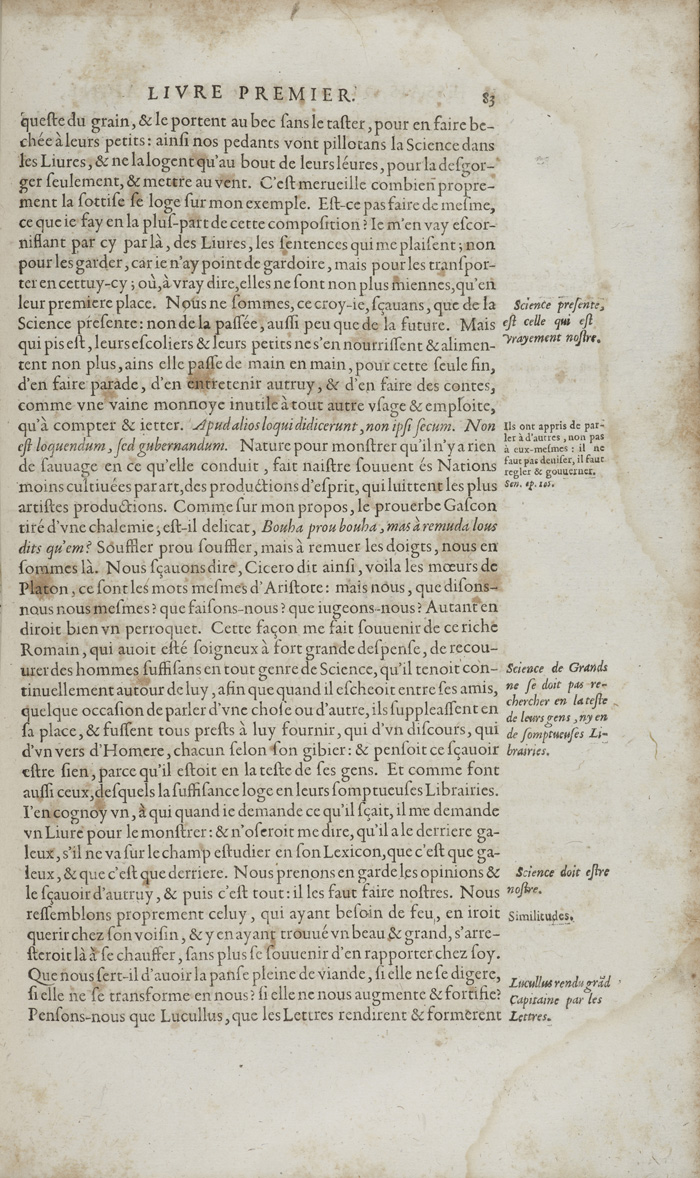 LIVRE PREMIER. 83
queſte du grain, & le portent au bec ſans le taſter, pour en faire be-
chée à leurs petits: ainſi nos pedants vont pillotans la Science dans
les Liures, & ne la logent qu'au bout de leurs léures, pour la deſgor-
ger ſeulement, & mettre au vent. C'eſt merueille combien propre-
ment la ſottiſe ſe loge ſur mon exemple. Eſt-ce pas faire de meſme,
ce que ie fay en la pluſ-part de cette compoſition? Ie m'en vay eſcor-
niflant par cy par là, des Liures, les ſentences qui me plaiſent; non
pour les garder, car ie n'ay point de gardoire, mais pour les tranſpor-
ter en cettuy-cy; où, à vray dire, elles ne ſont non plus miennes, qu'en
leur premiere place. Nous ne ſommes, ce croy-ie, ſçauans, que de la
Science preſente: non de la paſſée, auſſi peu que de la future. Mais
qui pis eſt, leurs eſcoliers & leurs petits ne s'en nourriſſent & alimen-
tent non plus, ains elle paſſe de main en main, pour cette ſeule fin,
d'en faire parade, d'en entretenir autruy, & d'en faire des contes,
comme vne vaine monnoye inutile à tout autre vſage & emploite,
qu'à compter & ietter. Apud alios loqui didicerunt, non ipſi ſecum. Non
eſt loquendum, ſed gubernandum. Nature pour monſtrer qu'il n'y a rien
de ſauuage en ce qu'elle conduit, fait naiſtre ſouuent és Nations
moins cultiuées par art, des productions d'eſprit, qui luittent les plus
artiſtes productions. Comme ſur mon propos, le prouerbe Gaſcon
tiré d'vne chalemie, eſt-il delicat, Bouha prou bouha, mas à remuda lous
dits qu'em? Souffler prou ſouffler, mais à remuer les doigts, nous en
ſommes là. Nous ſçauons dire, Cicero dit ainſi, voila les mœurs de
Platon, ce ſont les mots meſmes d'Ariſtote: mais nous, que diſons-
nous nous meſmes? que faiſons-nous? que iugeons-nous? Autant en
diroit bien vn perroquet. Cette façon me fait ſouuenir de ce riche
Romain, qui auoit eſté ſoigneux à fort grande deſpenſe, de recou-
urer des hommes ſuffiſans en tout genre de Science, qu'il tenoit con-
tinuellement autour de luy, afin que quand il eſcheoit entre ſes amis,
quelque occaſion de parler d'vne choſe ou d'autre, ils ſuppleaſſent en
ſa place, & fuſſent tous preſts à luy fournir, qui d'vn diſcours, qui
d'vn vers d'Homere, chacun ſelon ſon gibier: & penſoit ce ſçauoir
eſtre ſien, parce qu'il eſtoit en la teſte de ſes gens. Et comme font
auſſi ceux, deſquels la ſuffiſance loge en leurs ſomptueuſes Librairies.
I'en cognoy vn, à qui quand ie demande ce qu'il ſçait, il me demande
vn Liure pour le monſtrer: & n'oſeroit me dire, qu'il a le derriere ga-
leux, s'il ne va ſur le champ eſtudier en ſon Lexicon, que c'eſt que ga-
leux, & que c'eſt que derriere. Nous prenons en garde les opinions &
le ſçauoir d'autruy, & puis c'eſt tout: il les faut faire noſtres. Nous
reſſemblons proprement celuy, qui ayant beſoin de feu, en iroit
querir chez ſon voiſin, & y en ayant trouué vn beau & grand, s'arre-
ſteroit là à ſe chauffer, ſans plus ſe ſouuenir d'en rapporter chez ſoy.
Que nous ſert-il d'auoir la panſe pleine de viande, ſi elle ne ſe digere,
ſi elle ne ſe transforme en nous? ſi elle ne nous augmente & fortifie?
Penſons-nous que Lucullus, que les Lettres rendirent & formerent
Science preſente,
eſt celle qui eſt
vrayement noſtre.
Ils ont appris de par-
ler à d'autres, non pas
à eux-meſmes: il ne
faut pas deuiſer, il faut
regler & gouuerner.
Sen. ep. 108.
Science de Grands
ne ſe doit pas re-
chercher en la teſte
de leurs gens, ny en
de ſomptueuſes Li-
brairies.
Science doit eſtre
noſtre.
Similitudes.
Lucullus rendu grãd
Capitaine par les
Lettres.